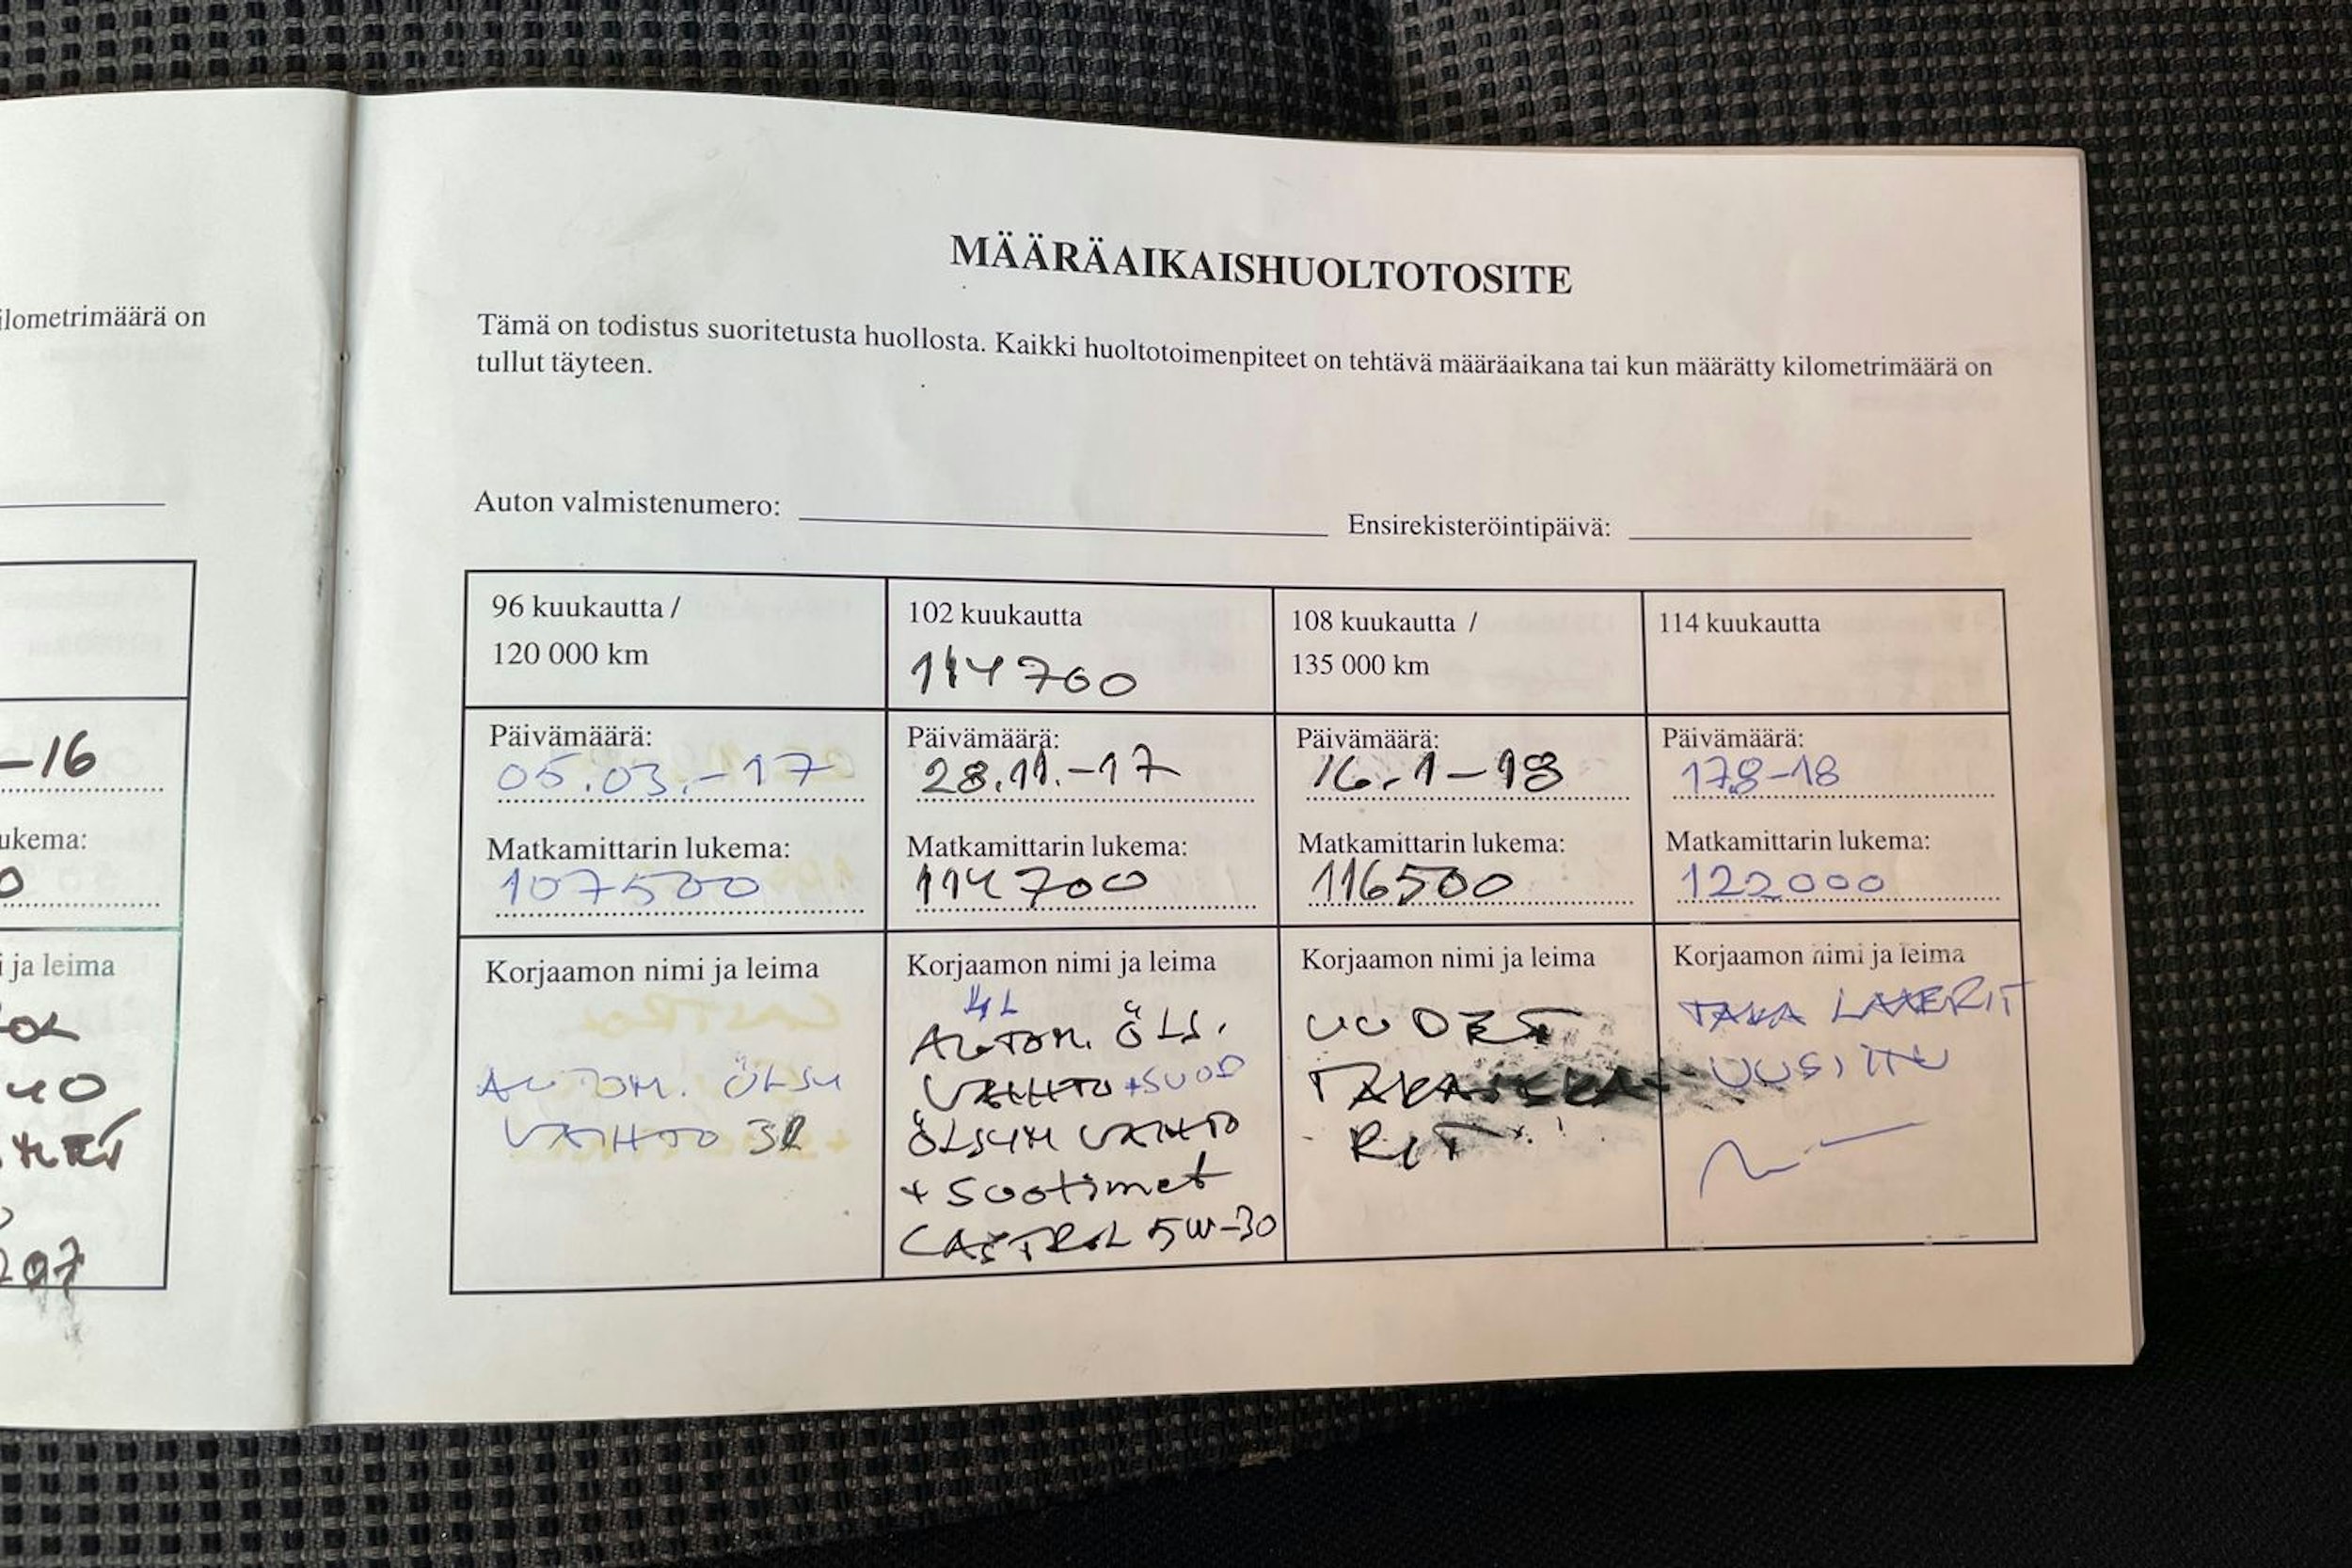 ilometrimäärä on
-16
ukema:
0
i ja leima
40
297
MÄÄRÄAIKAISHUOLTOTOSITE
Tämä on todistus suoritetusta huollosta. Kaikki huoltotoimenpiteet on tehtävä määräaikana tai kun määrätty kilometrimäärä on
tullut täyteen.
Auton valmistenumero:
Ensirekisteröintipäivä:
96 kuukautta /
120 000 km
Päivämäärä:
05.03.-17
Matkamittarin lukema:
107500
Korjaamon nimi ja leima
AUTOM. ÖLJY
VAIHTO 3l
102 kuukautta
114700
Päivämäärä:
28.11.-17
Matkamittarin lukema:
114700
Korjaamon nimi ja leima
4L
AUTOM. ÖLJ.
VAIHTO +SUOD
ÖLJYN VAIHTO
+ suotimet
CASTROL 5W-30
108 kuukautta /
135 000 km
Päivämäärä:
16.1-18
Matkamittarin lukema:
116500
Korjaamon nimi ja leima
UUDET
RIT
114 kuukautta
Päivämäärä:
17.8-18
Matkamittarin lukema:
122000
Korjaamon nimi ja leima
TAKA LAAKERIT
UUSITTU